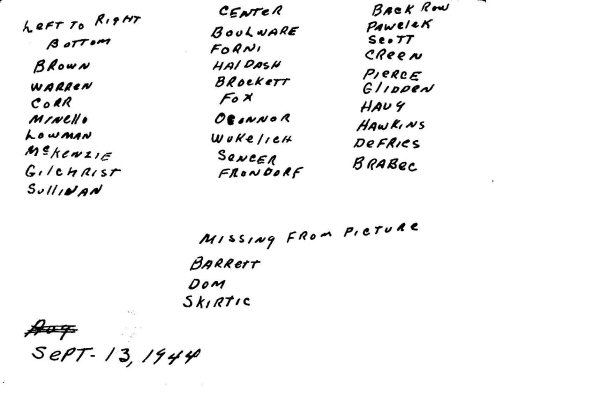 Left To Right
Bottom
Brown
Warren
Corr
Minello
Lowman
McKenzie
Gilchrist
Sullivan
Center
Boulware
Forni
Haldash
Brockett
Fox
Oconnor
Wukelich
Sencer
Frondorf
Back Row
Pawelek
Scott
Creen
Pierce
Glidden
Haug
Hawkins
DeFries
Brabec
Missing From Picture
Barrett
Dom
Skirtic
Aug
Sept-13, 1944